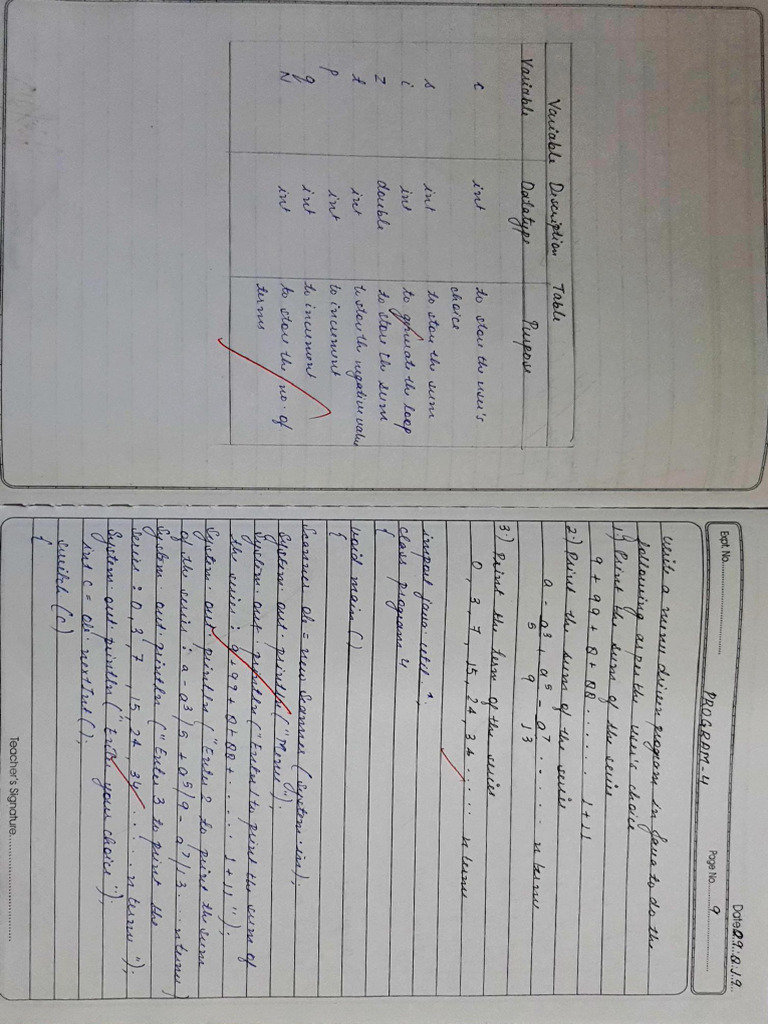 Variable Description Table
Variable Datatype Purpose
c int to store the user's
choice
s int to store the sum
i int to generate the loop
z double to store the sum
t int to store the negative value
p int to increment
q int to increment
N int to store the no. of
terms
Date 29.8.19..
Expt. No. PROGRAM-4 Page No. 9
Write a menu driven program in Java to do the
following as per the user's choice
1) Print the sum of the series
9 + 99 + 8 + 88 ...... 1 + 11
2) Print the sum of the series
a - a³ + a⁵ - a⁷ ..... n terms
5 9 13
3) Print the term of the series
0, 3, 7, 15, 24, 34 ..... n terms
import java.util.*;
class program 4
{
void main()
{
Scanner ob = new Scanner (System.in);
System.out.println ("Menu");
System.out.println ("Enter 1 to print the sum of
the series : 9+99+8+88+..... 1+11");
System.out.println ("Enter 2 to print the sum
of the series : a-a³/5+a⁵/9-a⁷/13...n terms)
System.out.println ("Enter 3 to print the
series : 0, 3, 7, 15, 24, 34 ..... n terms");
System.out.println ("Enter your choice");
int c = ob.nextInt();
switch (c)
{
Teacher's Signature